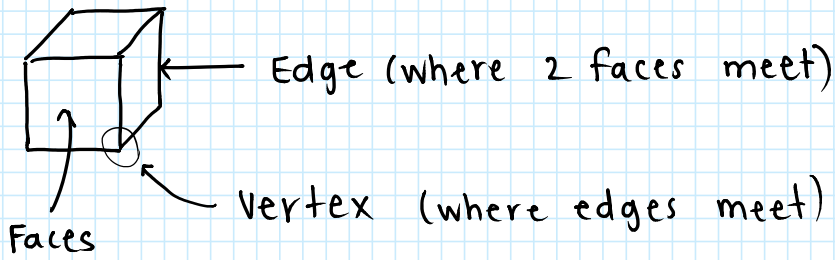 Edge (where 2 faces meet)
Vertex (where edges meet)
Faces